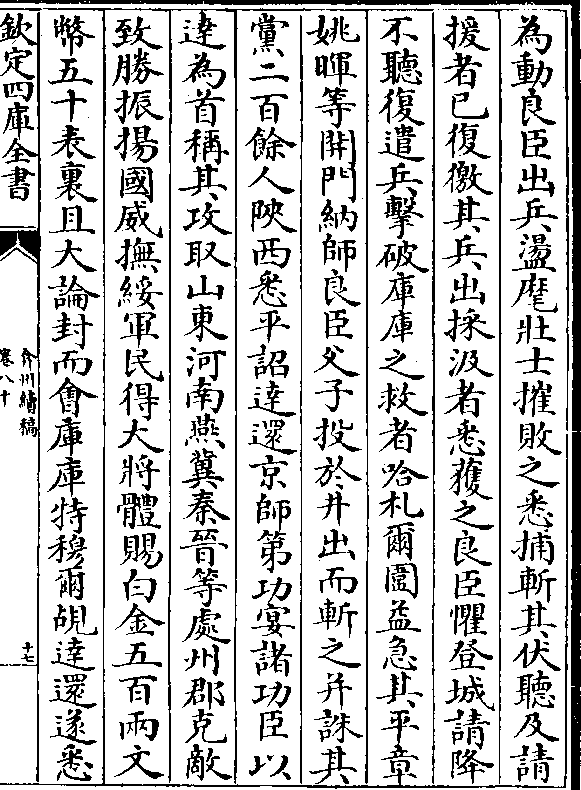 為動良臣出兵盪麾壯士摧敗之悉捕斬其伏聽及請
援者已復徼其兵出採汲者悉獲之良臣懼登城請降
不聽復遣兵擊破庫庫之救者哈札爾圖益急其平章
姚暉等開門納師良臣父子投於井出而斬之并誅其
黨二百餘人陜西悉平詔達還京師第功宴諸功臣以
達為首稱其攻取山東河南燕冀秦晉等處州郡克敵
致勝振揚國威撫綏軍民得大將體賜白金五百兩文
幣五十表裏且大論封而會庫庫特穆爾覘達還遂悉
欽定四庫全書
弇州續稿
卷八十
十七